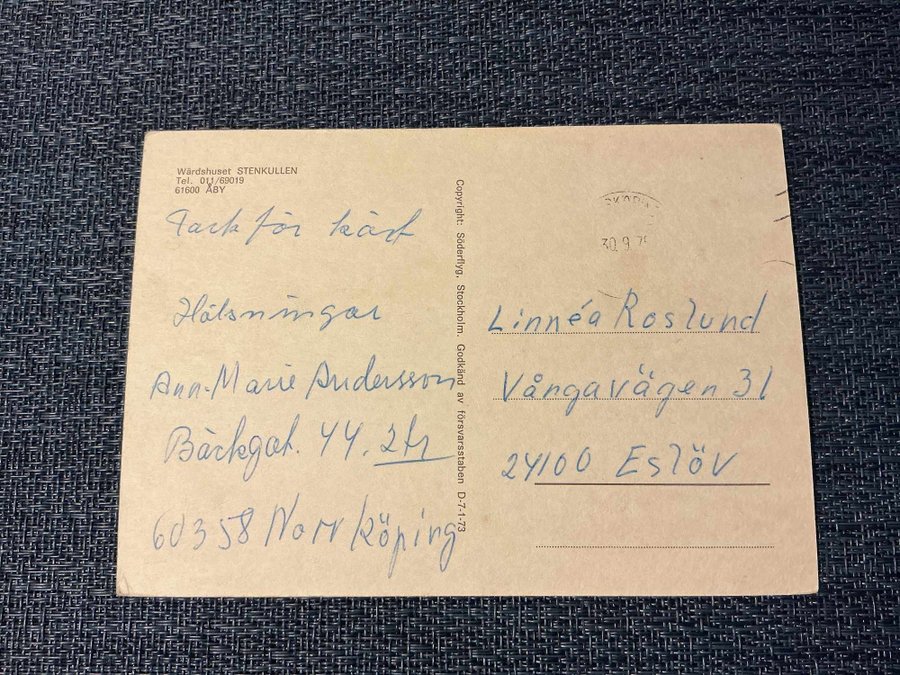 Wärdshuset STENKULLEN
Tel. 011/69019
61600 ÅBY
Tack för kört
Hälsningar
Ann-Marie Andersson
Bäckgat. 44. 2tr
60358 Norrköping
Copyright: Söderflyg, Stockholm. Godkänd av försvarsstaben D-7-1-73
30.9.7
Linnéa Roslund
Vångavägen 31
24100 Eslöv